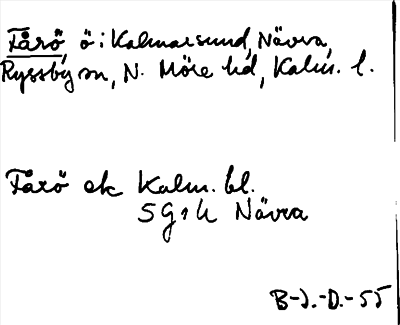 Fårö, ö i Kalmarsund, Nävra,
Ryssby sn, N. Möre hd, Kalm. l.
Fårö ek Kalm. bl.
5 G 1 h Nävra
B-J.-D.-55